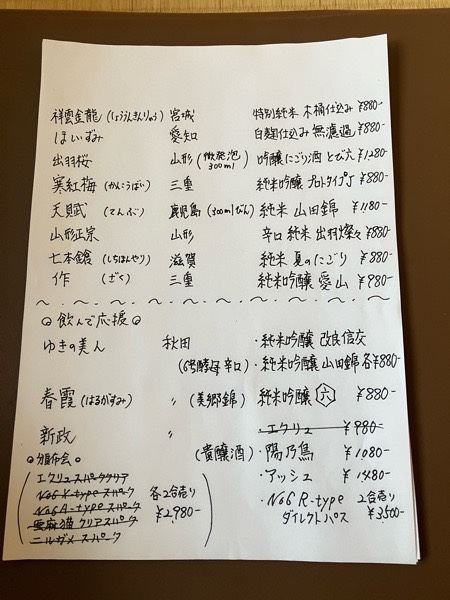 祥雲金龍 (しょううんきんりゅう) 宮城 特別純米 木桶仕込み ¥880-
ほしいずみ 愛知 白麹仕込み 無濾過 ¥880-
出羽桜 山形 (微発泡 300ml) 吟醸にごり酒 とび六 ¥1280-
寒紅梅 (かんこうばい) 三重 純米吟醸 プロトタイプJ ¥880-
天賦 (てんぶ) 鹿児島 (300mlびん) 純米 山田錦 ¥1180-
山形正宗 山形 辛口 純米 出羽燦々 ¥880-
七本鎗 (しちほんやり) 滋賀 純米 夏のにごり ¥880-
作 (ざく) 三重 純米吟醸 愛山 ¥980-
◎飲んで応援◎
ゆきの美人 秋田 ・純米吟醸 改良信交
(6号酵母 辛口) ・純米吟醸 山田錦 各¥880-
春霞 (はるかすみ) 〃 (美郷錦) 純米吟醸 六 ¥880-
新政 〃 ・エクリュ ¥980-
(貴醸酒) ・陽乃鳥 ¥1080-
・アッシュ ¥1480-
・No6 R-type 2合売り
ダイレクトパス ¥3,500-
◎頒布会◎
エクリュスパーククリア
No6 X-type スパーク 各2合売り
No6 A-type スパーク ¥2,980-
亜麻猫 クリアスパーク
ニルガメ スパーク